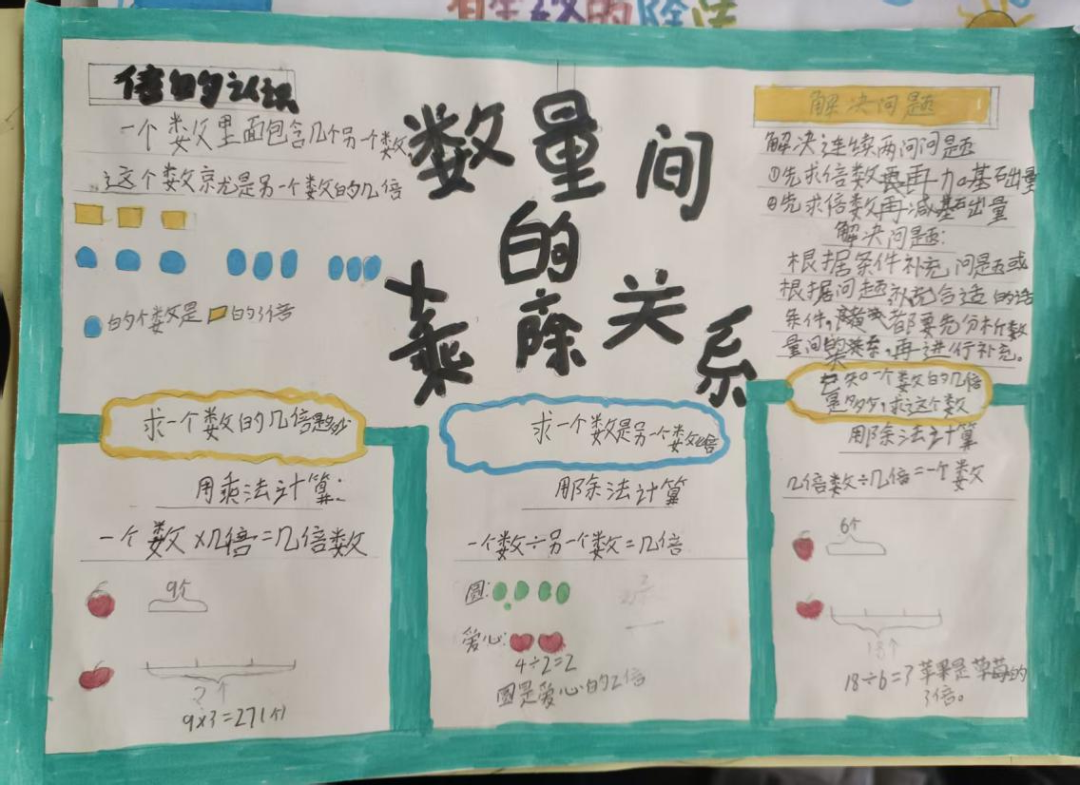 有关的除法
倍的认识
一个数里面包含几个另一个数
这个数京尤是另一个数的几倍
的个数是 的3倍
数量间
的
乘除关系
解决问题
解决连续两问问题
①先求倍数再加基础量
②先求倍数再减基础量
解决问题:
根据条件补充问题或
根据问题补充合适的
条件,都要先分析数
量间的关系,再进行补充。
求一个数的几倍是多少
用乘法计算:
一个数×几倍=几倍数
9个
?个
9×3=27(个)
求一个数是另一个数几倍
用除法计算
一个数÷另一个数=几倍
圆:
爱心:
4÷2=2
圆是爱心的2倍
已知一个数的几倍
是多少,求这个数
用除法计算
几倍数÷几倍=一个数
6个
18个
18÷6=3 苹果是草莓的
3倍。